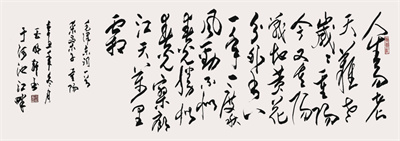 人生易老
天难老
岁岁重阳
今又重阳
战地黄花
分外香
一年一度秋
风劲不似
春光胜似
春光寥廓
江天万里
霜
毛泽东词一首
采桑子重阳